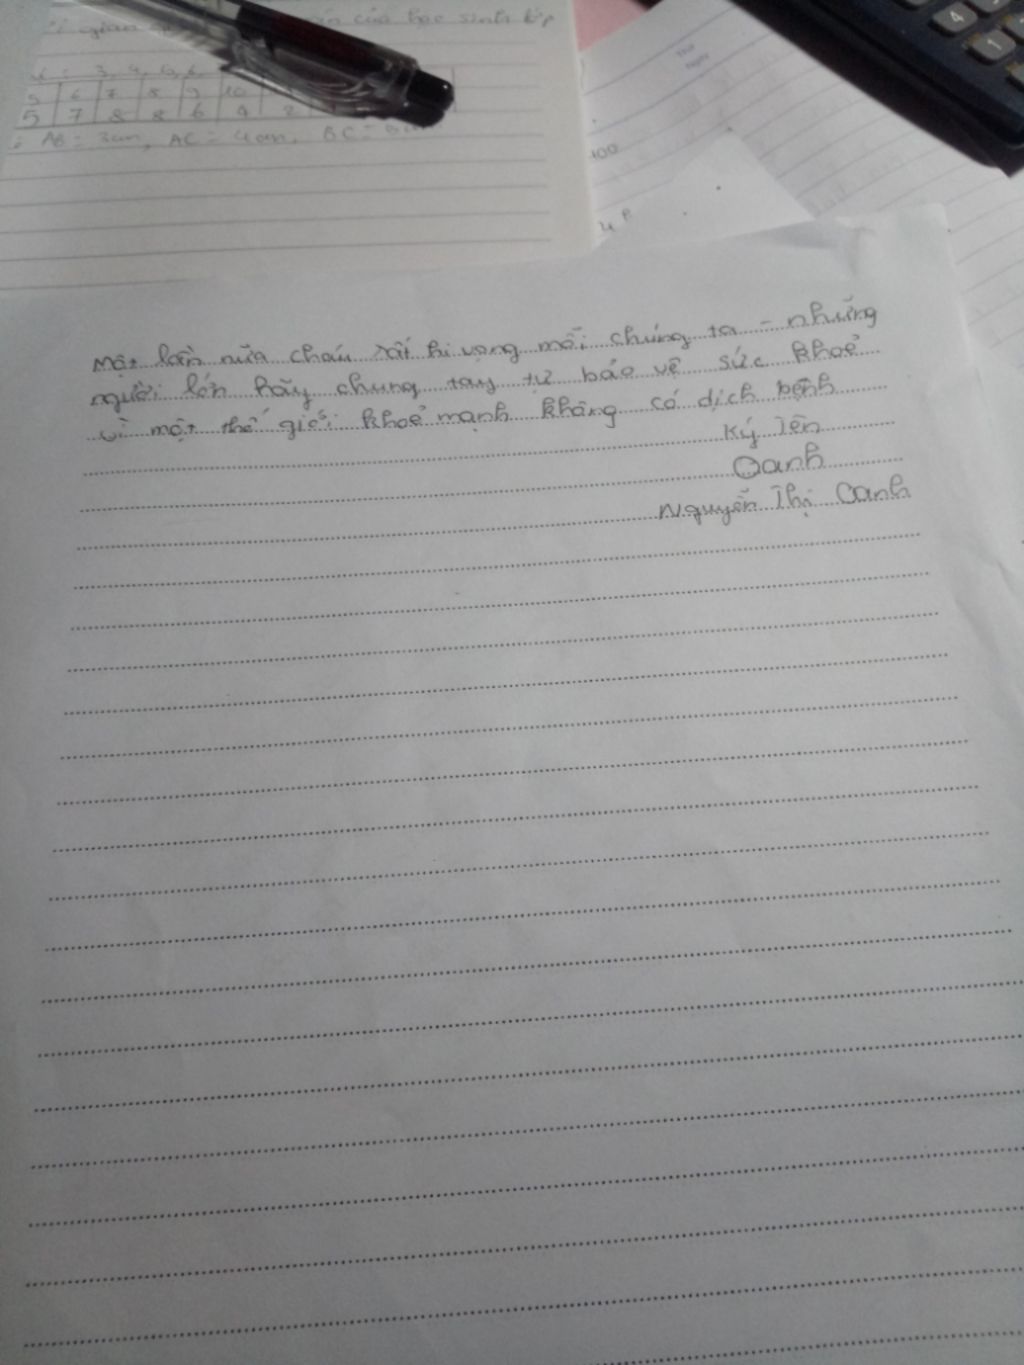 gian
của học sinh lớp
5 6 7 8 9 10
5 7 8 8 6 9 2
: AB = 3cm, AC = 4cm, BC = 5cm
Thứ
Ngày
100
4
1
Một lần nữa cháu rất hi vọng mỗi chúng ta - những
người lớn hãy chung tay tự bảo vệ sức khoẻ
vì một thế giới khoẻ mạnh không có dịch bệnh
Ký Tên
Oanh
Nguyễn Thị Oanh